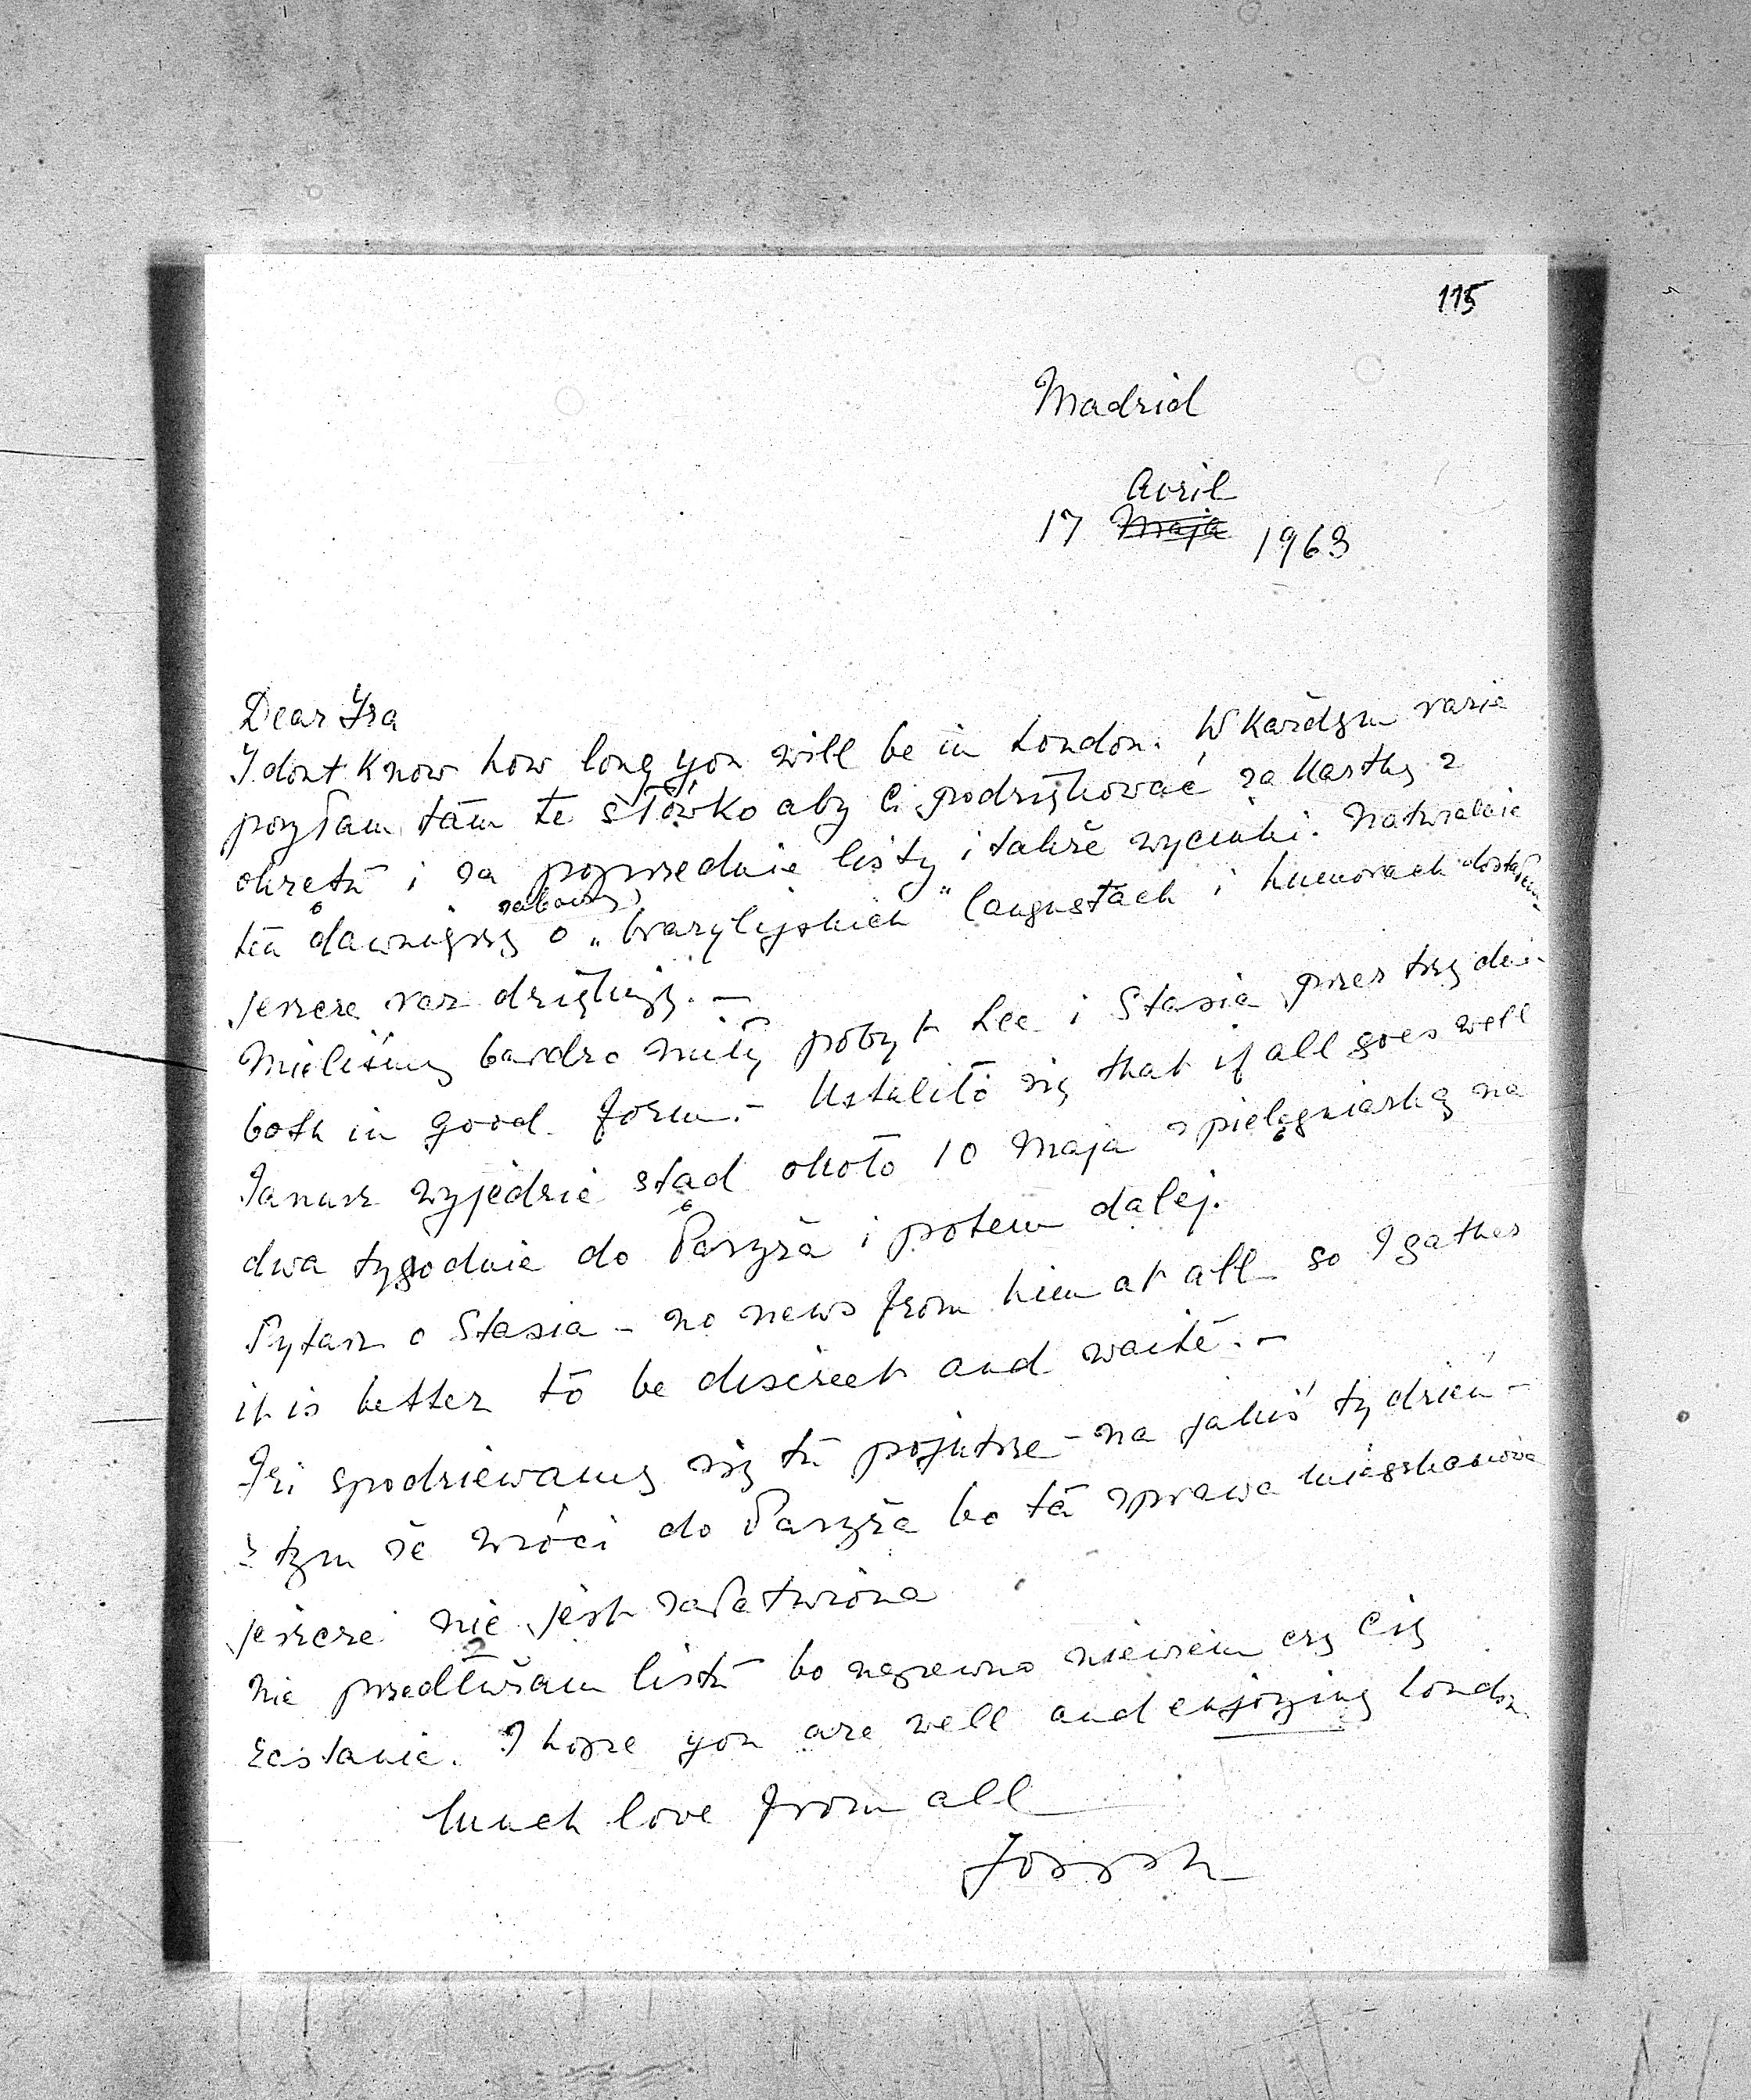 115
Madrid
Avril
17 ~~Maja~~ 1963
Dear Ira
I dont Know how long you will be in London. W Każdym razie
posyłam tam te słówko aby Ci podziękować za Kartkę z
okrętu i za poprzednie listy i także wycinki. Naturalnie
zabawny
ten dawniejszy o „brazylijskich" langustach i humorach dostałem
jeszcze raz dziękuję. —
Mieliśmy bardzo miły pobyt Lee i Stasia przez trzy dni.
both in good form. — Ustaliło się that if all goes well
Janusz wyjedzie stąd około 10 Maja z pielęgniarką na
dwa tygodnie do Paryża i potem dalej.
Pytasz o Stasia – no news from him at all so I gather
it is better to be discreet and waite. —
Izi spodziewamy się tu pojutrze – na jakiś tydzień –
z tym że wróci do Paryża bo ta sprawa mieszkaniowa
jeszcze nie jest załatwiona
Nie przedłużam listu bo napewno niewiem czy Cię
zastanie. I hope you are well and enjoying London
Much love from all
Joseph